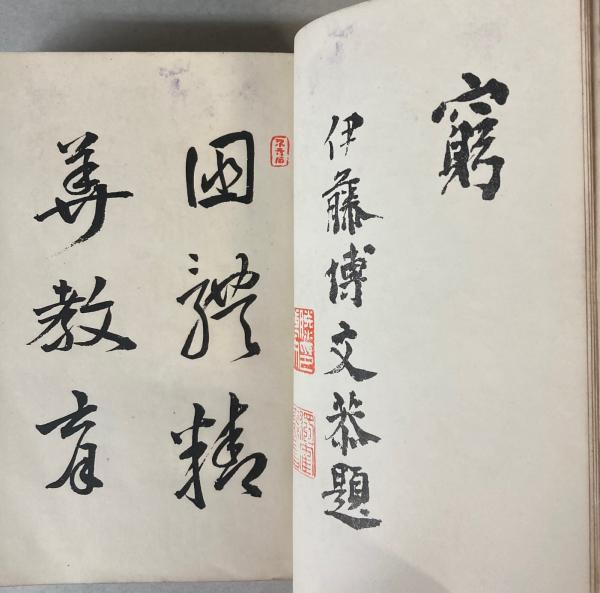 窮
伊藤博文恭題
国體精
華教育